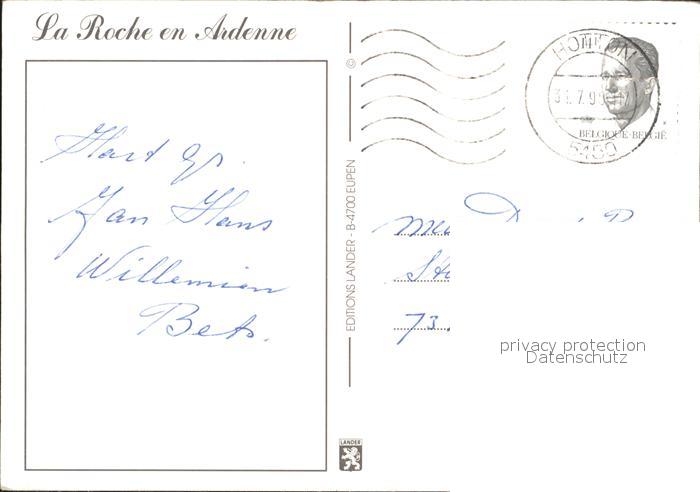 La Roche en Ardenne
Hart gr.
Jan Hans
Willemien
Bets.
©
EDITIONS LANDER - B-4700 EUPEN
LANDER
HOTTON
BELGIQUE-BELGIË
73.
privacy protection
Datenschutz